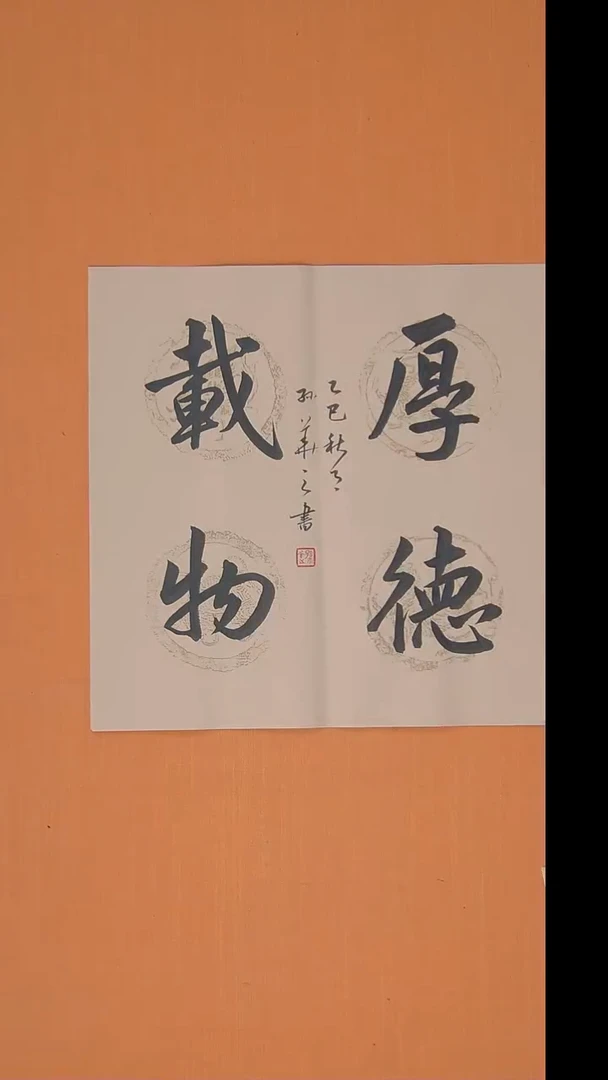 厚德
載物
乙巳秋月
孙华之書